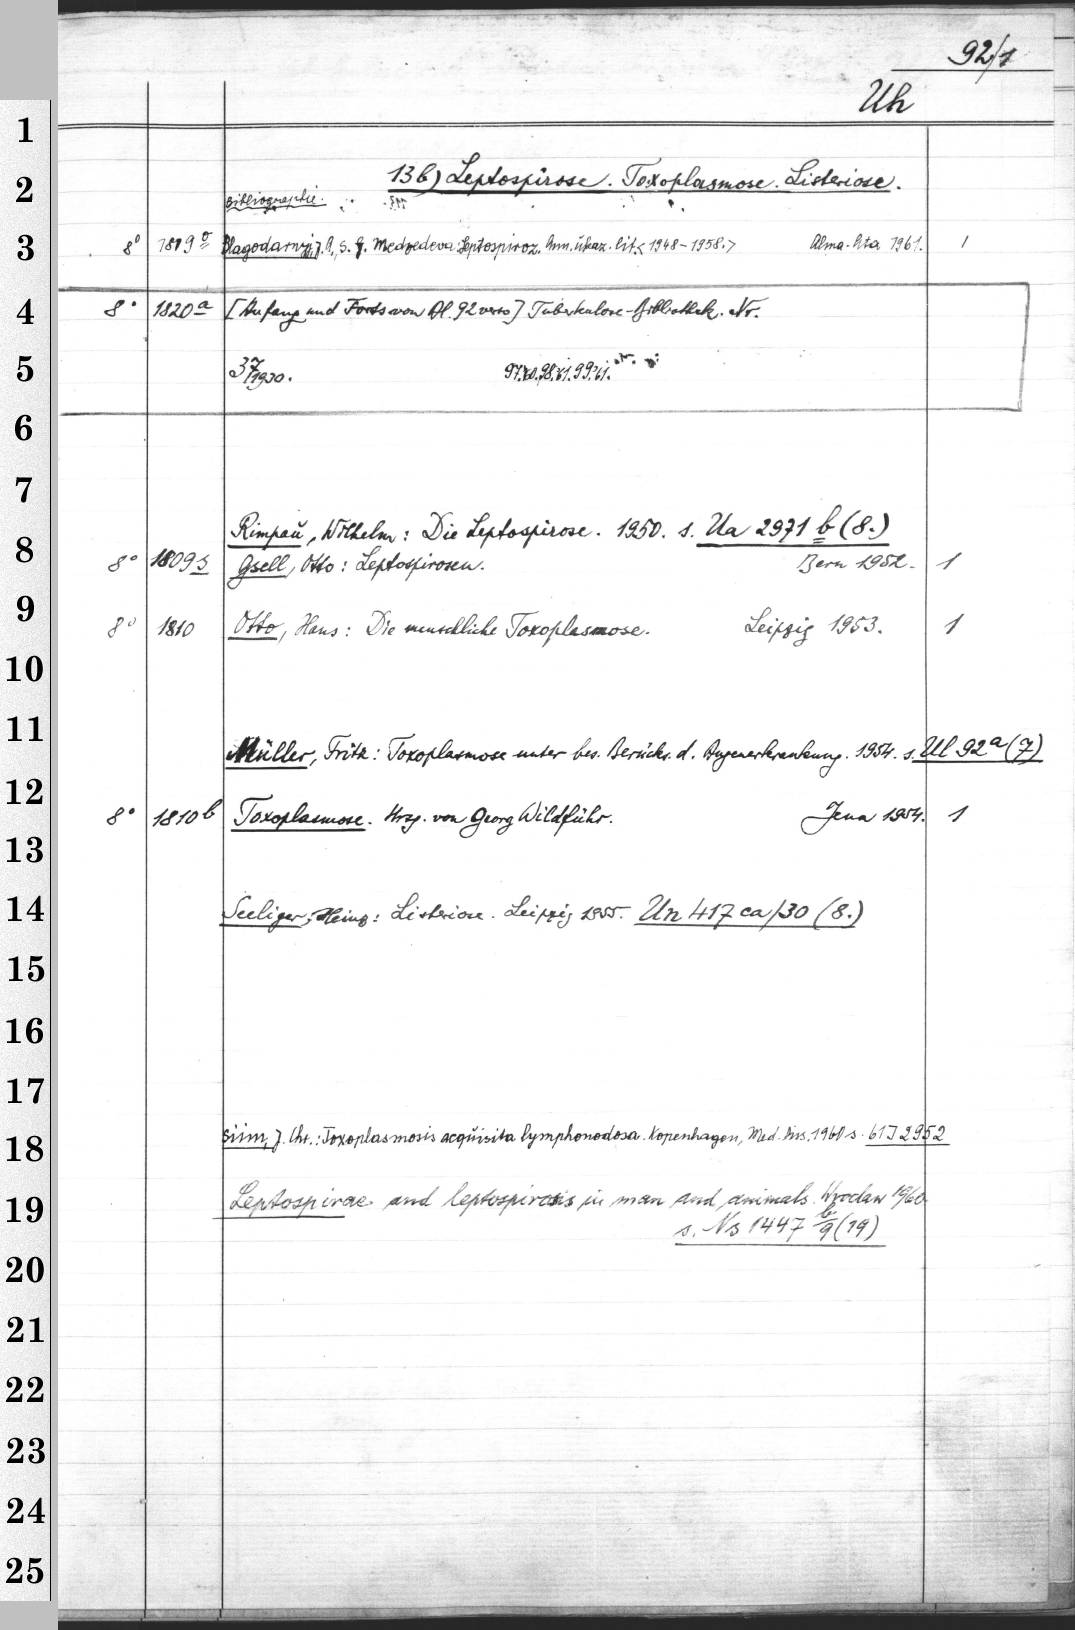 92/1
Uh
1
2
3
4
5
6
7
8
9
10
11
12
13
14
15
16
17
18
19
20
21
22
23
24
25
13b) Leptospirose. Toxoplasmose. Listeriose.
Bibliographie.
8° 1819 Blagodarnyj, J. A., S. J. Medvedeva: Leptospiroz. Ann. ukaz. lit. <1948-1958.> Alma-Ata 1961. 1
8° 1820 a [Anfang und Forts. von Bl. 92 verso] Tuberkulose-Bibliothek. Nr.
37/1930. 97.60.98.61.99.61.
Rimpau, Wilhelm: Die Leptospirose. 1950. s. Ua 2971 b (8.)
8° 1809 s Gsell, Otto: Leptospirosen. Bern 1952. 1
8° 1810 Otto, Hans: Die menschliche Toxoplasmose. Leipzig 1953. 1
Müller, Fritz: Toxoplasmose unter bes. Berücks. d. Augenerkrankung. 1954. s. Ul 92 a (7)
8° 1810 b Toxoplasmose. Hrsg. von Georg Wildführ. Jena 1954. 1
Seeliger, Heinz: Listeriose. Leipzig 1955. Un 417 ca/30 (8.)
Siim, J. Chr.: Toxoplasmosis acquisita lymphonodosa. Kopenhagen, Med. Diss. 1960 s. 61 J 2952
Leptospirae and leptospirosis in man and animals. Wroclaw 1960
s. Ns 1447 b/9 (19)